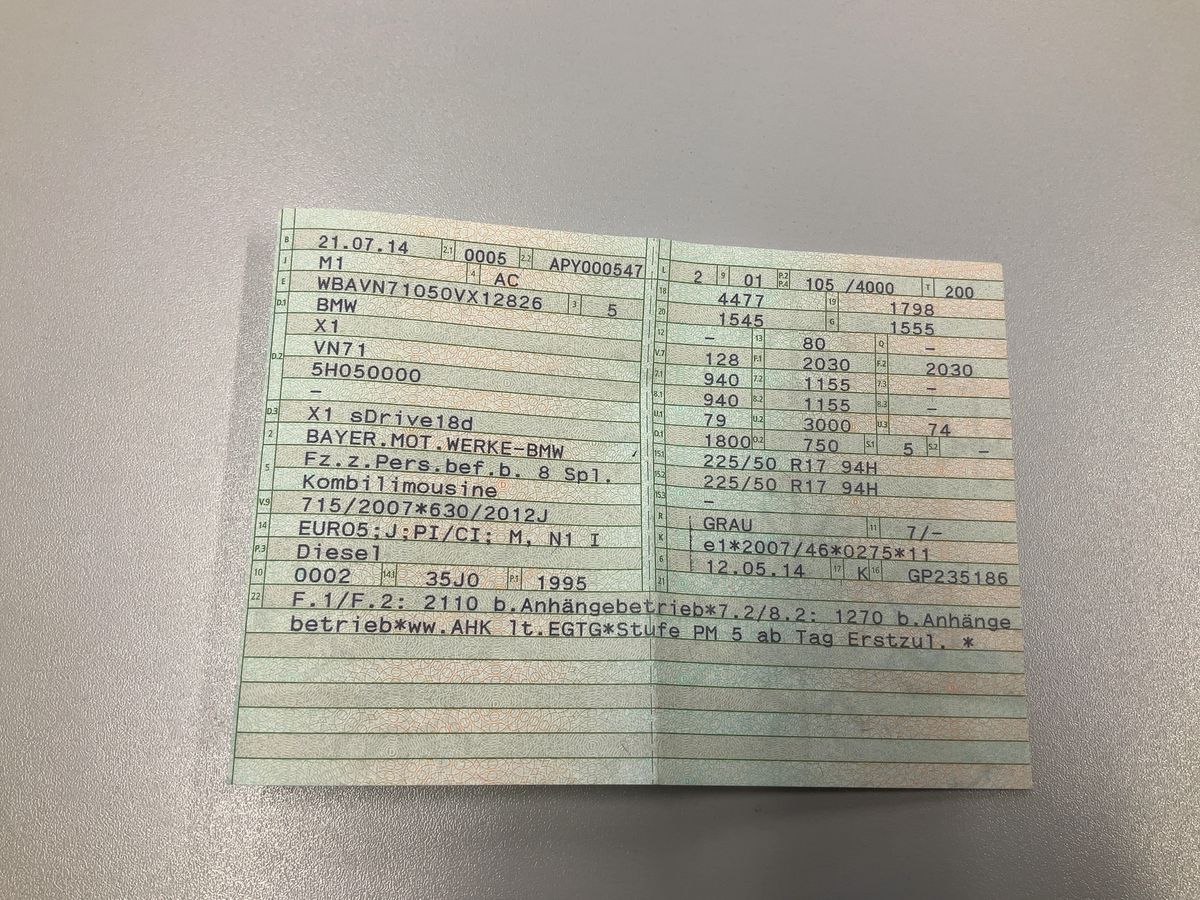 B 21.07.14 2.1 0005 2.2 APY000547
J M1 4 AC
E WBAVN71050VX12826 3 5
D.1 BMW
X1
D.2 VN71
5H050000
–
D.3 X1 sDrive18d
2 BAYER.MOT.WERKE-BMW
5 Fz.z.Pers.bef.b. 8 Spl.
Kombilimousine
V.9 715/2007*630/2012J
14 EURO5;J;PI/CI; M, N1 I
P.3 Diesel
10 0002 14.1 35J0 P.1 1995
L 2 9 01 P.2 P.4 105 /4000 T 200
18 4477 19 1798
20 1545 G 1555
12 – 13 80 Q –
V.7 128 F.1 2030 F.2 2030
7.1 940 7.2 1155 7.3 –
8.1 940 8.2 1155 8.3 –
U.1 79 U.2 3000 U.3 74
O.1 1800 O.2 750 S.1 5 S.2 –
15.1 225/50 R17 94H
15.2 225/50 R17 94H
15.3 –
R GRAU 11 7/–
K e1*2007/46*0275*11
6 12.05.14 17 K 16 GP235186
21
22 F.1/F.2: 2110 b.Anhängebetrieb*7.2/8.2: 1270 b.Anhänge
betrieb*ww.AHK lt.EGTG*Stufe PM 5 ab Tag Erstzul. *